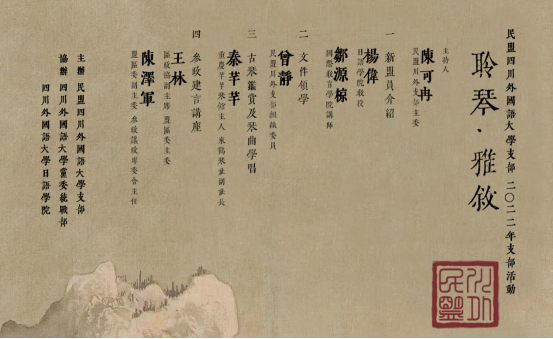 民盟四川外國語大學支部 二〇二二年支部活動
聆琴·雅敘
主持人
陳可冉
民盟川外支部主委
一 新盟員介紹
楊偉
日語學院教授
鄒源椋
國際教育學院講師
二 文件領學
曾靜
民盟川外支部組織委員
三 古琴鑑賞及琴曲學唱
秦芊芊
四 參政建言講座
王林
區政協副主席 盟區委主委
陳澤軍
盟區委副主委 參政議政專委會主任
主辦 民盟四川外國語大學支部
協辦 四川外國語大學黨委統戰部
四川外國語大學日語學院